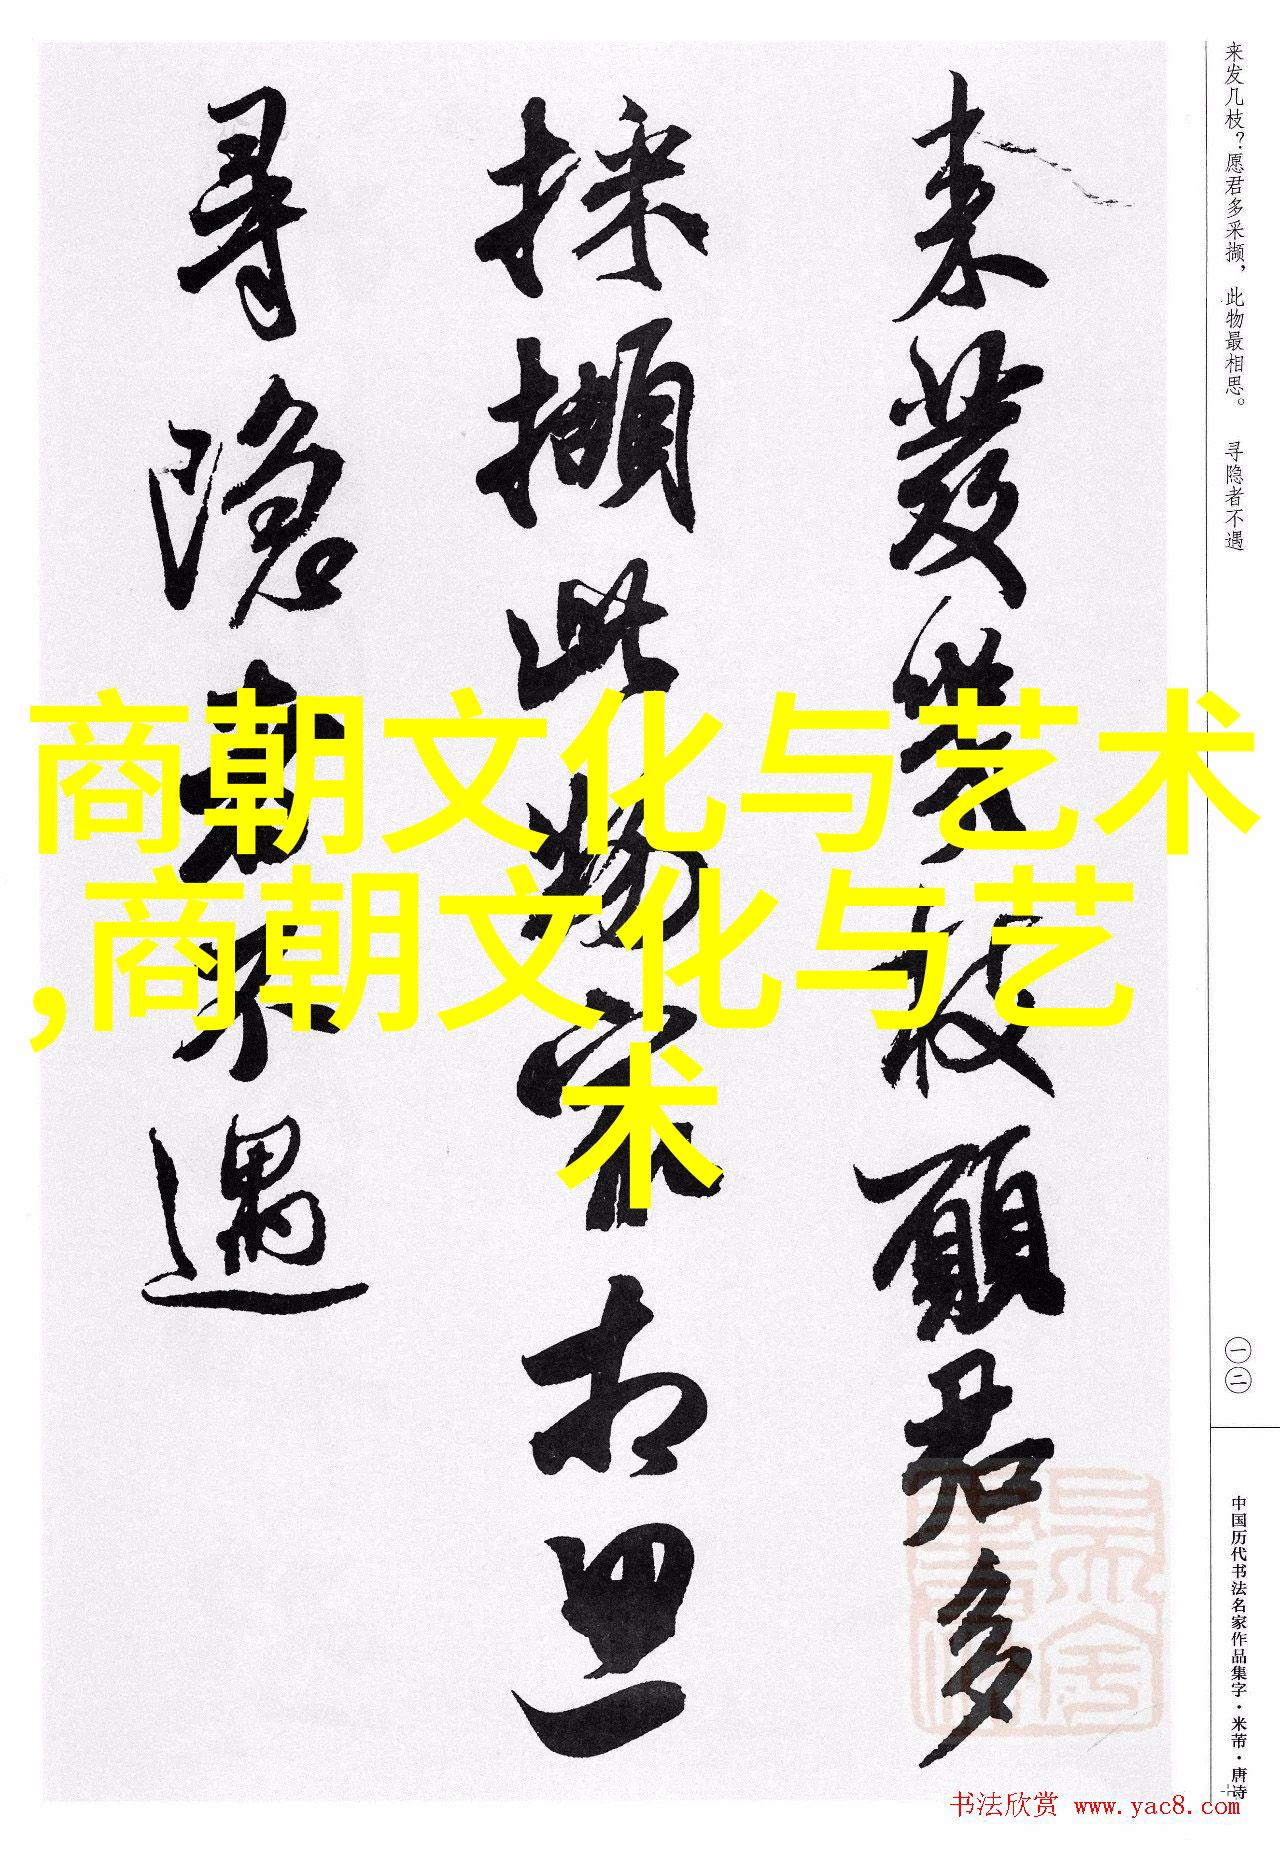 来发几枝？愿君多采撷，此物最相思。 寻隐者不遇
来發幾枝願君多
採擷此物最相思
尋隐者不遇
商朝文化与艺术
,商朝文化与艺
术
一二
中国历代书法名家作品集字·米芾·唐诗
书法欣赏 www.yac8.com